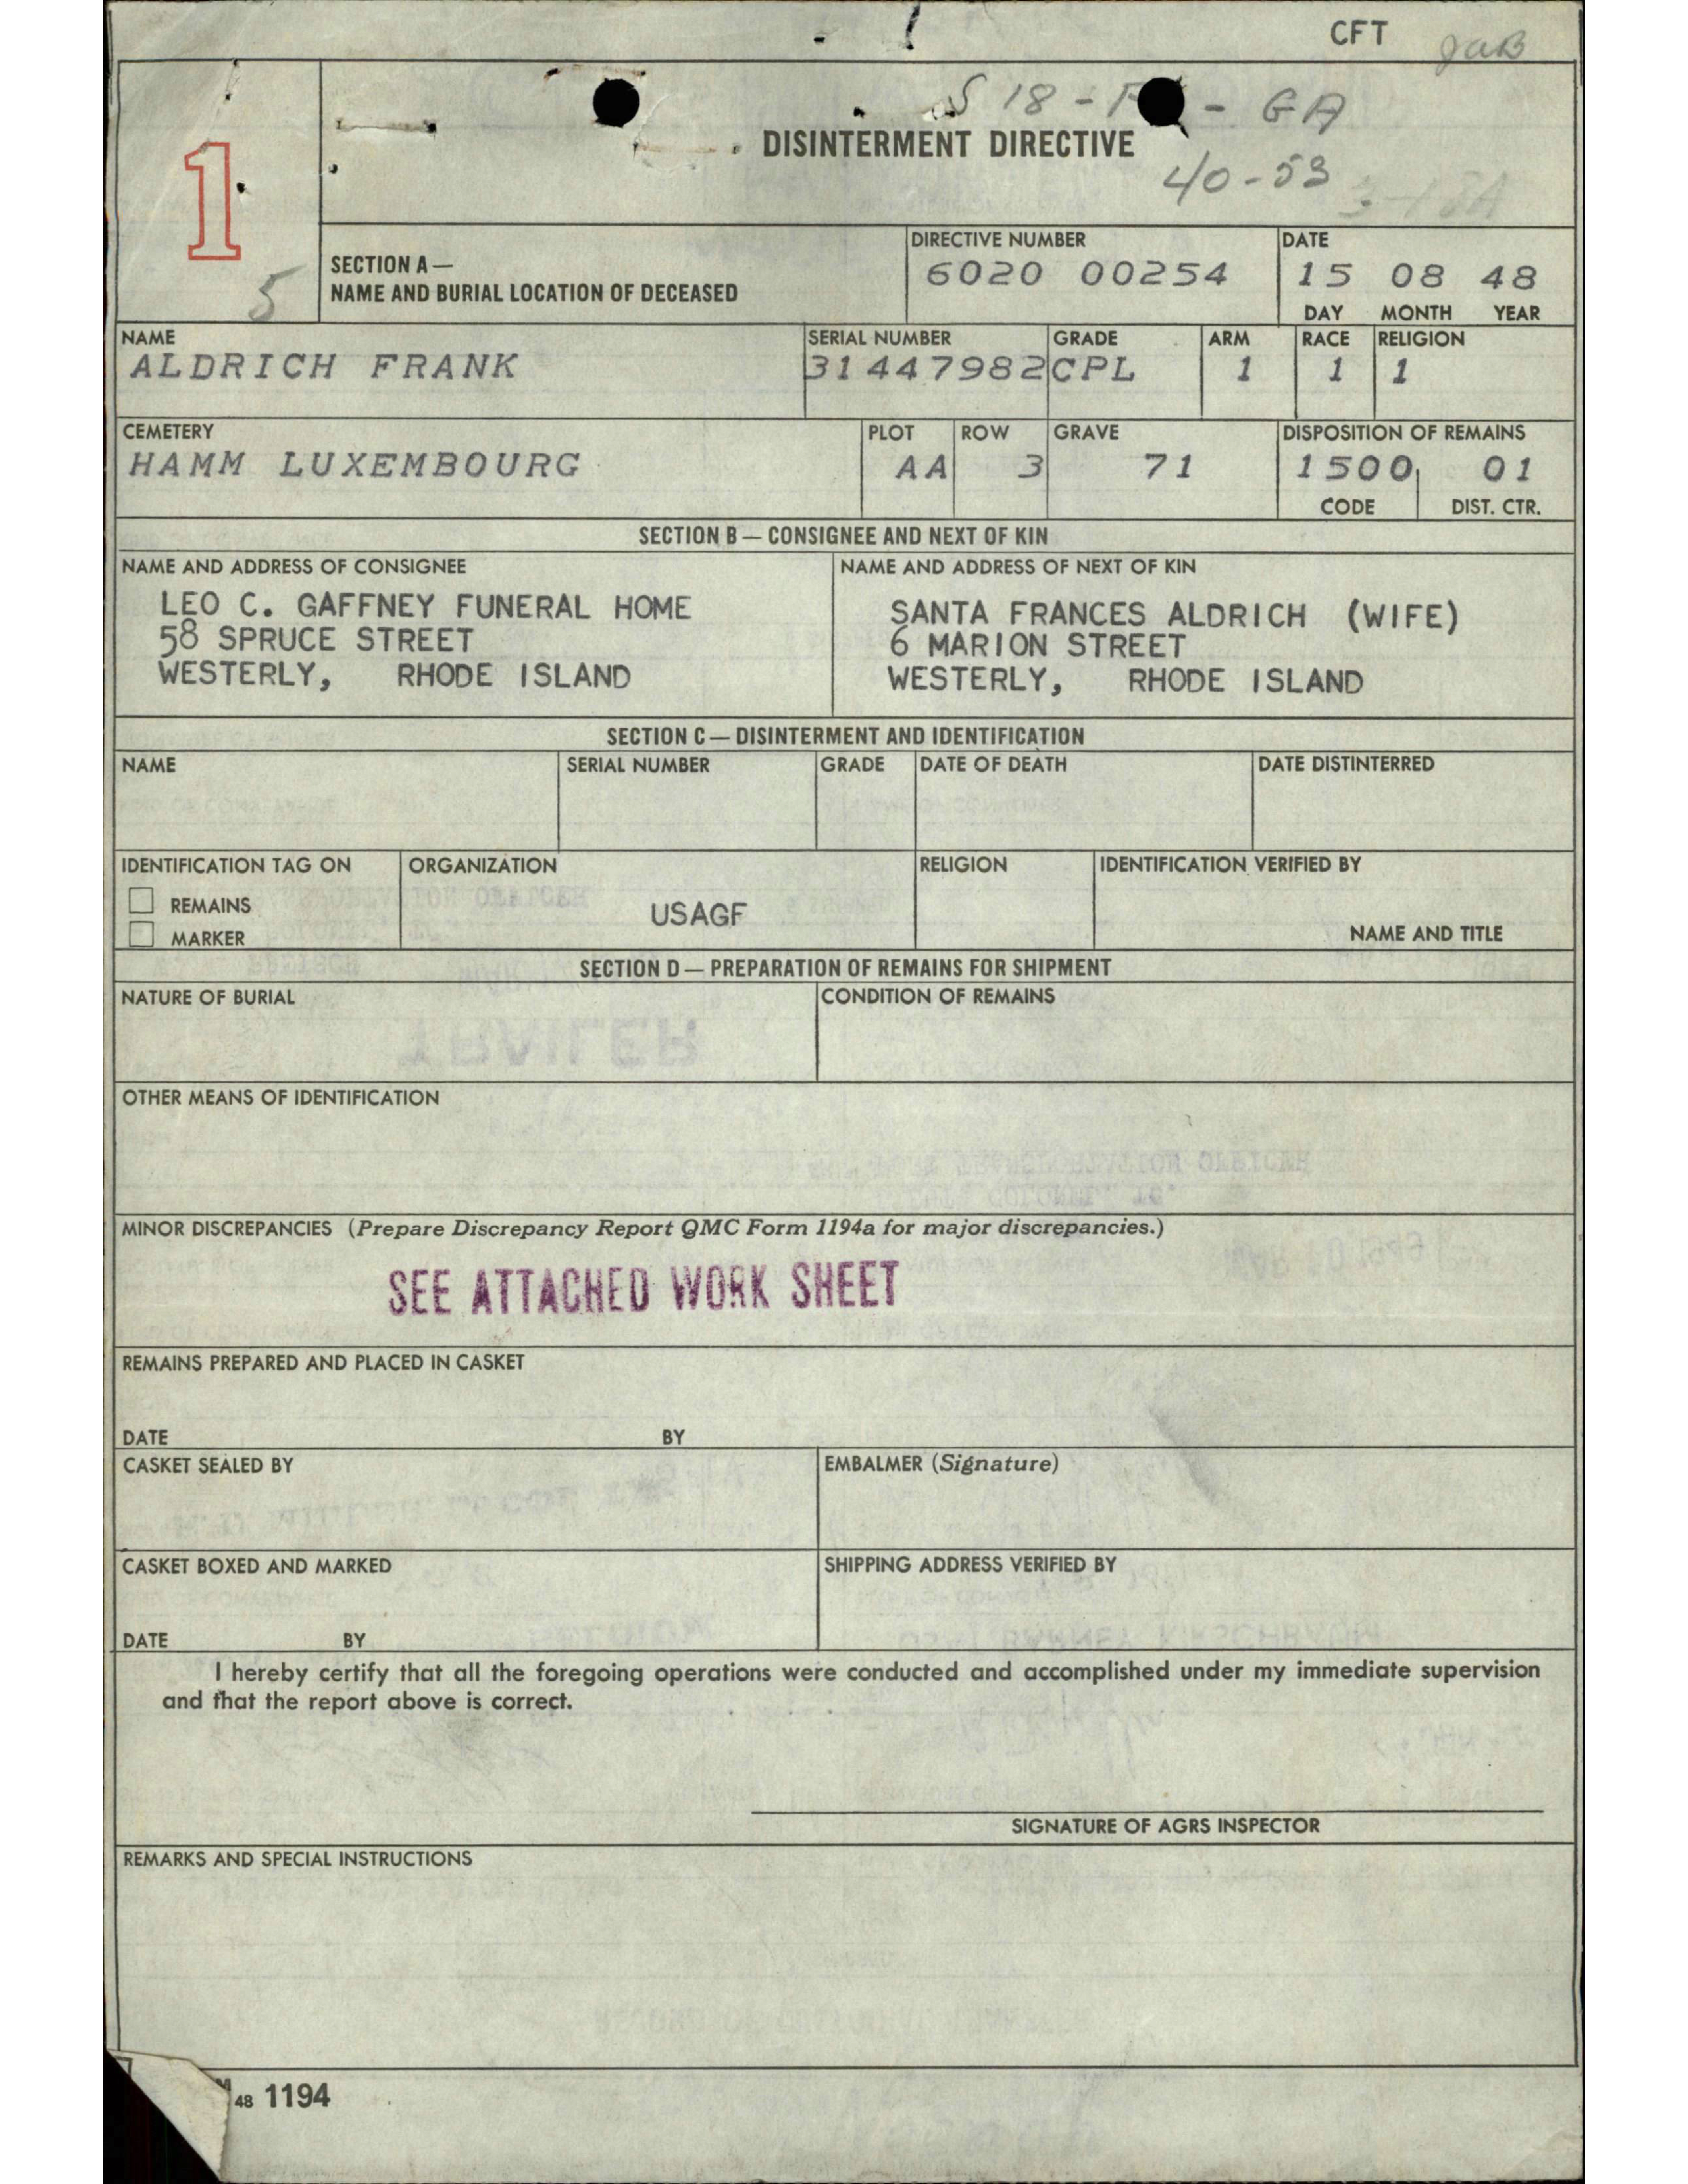 CFT JaB
S 18 - - GA
DISINTERMENT DIRECTIVE
40-53
1
5
SECTION A—
NAME AND BURIAL LOCATION OF DECEASED
DIRECTIVE NUMBER
6020 00254
DATE
15 08 48
DAY MONTH YEAR
NAME
ALDRICH FRANK
SERIAL NUMBER
31447982
GRADE
CPL
ARM
1
RACE
1
RELIGION
1
CEMETERY
HAMM LUXEMBOURG
PLOT
AA
ROW
3
GRAVE
71
DISPOSITION OF REMAINS
1500 01
CODE DIST. CTR.
SECTION B — CONSIGNEE AND NEXT OF KIN
NAME AND ADDRESS OF CONSIGNEE
LEO C. GAFFNEY FUNERAL HOME
58 SPRUCE STREET
WESTERLY, RHODE ISLAND
NAME AND ADDRESS OF NEXT OF KIN
SANTA FRANCES ALDRICH (WIFE)
6 MARION STREET
WESTERLY, RHODE ISLAND
SECTION C — DISINTERMENT AND IDENTIFICATION
NAME
SERIAL NUMBER
GRADE
DATE OF DEATH
DATE DISTINTERRED
IDENTIFICATION TAG ON
REMAINS
MARKER
ORGANIZATION
USAGF
RELIGION
IDENTIFICATION VERIFIED BY
NAME AND TITLE
SECTION D — PREPARATION OF REMAINS FOR SHIPMENT
NATURE OF BURIAL
CONDITION OF REMAINS
OTHER MEANS OF IDENTIFICATION
MINOR DISCREPANCIES (Prepare Discrepancy Report QMC Form 1194a for major discrepancies.)
SEE ATTACHED WORK SHEET
REMAINS PREPARED AND PLACED IN CASKET
DATE BY
CASKET SEALED BY
EMBALMER (Signature)
CASKET BOXED AND MARKED
DATE BY
SHIPPING ADDRESS VERIFIED BY
I hereby certify that all the foregoing operations were conducted and accomplished under my immediate supervision
and that the report above is correct.
SIGNATURE OF AGRS INSPECTOR
REMARKS AND SPECIAL INSTRUCTIONS
48 1194